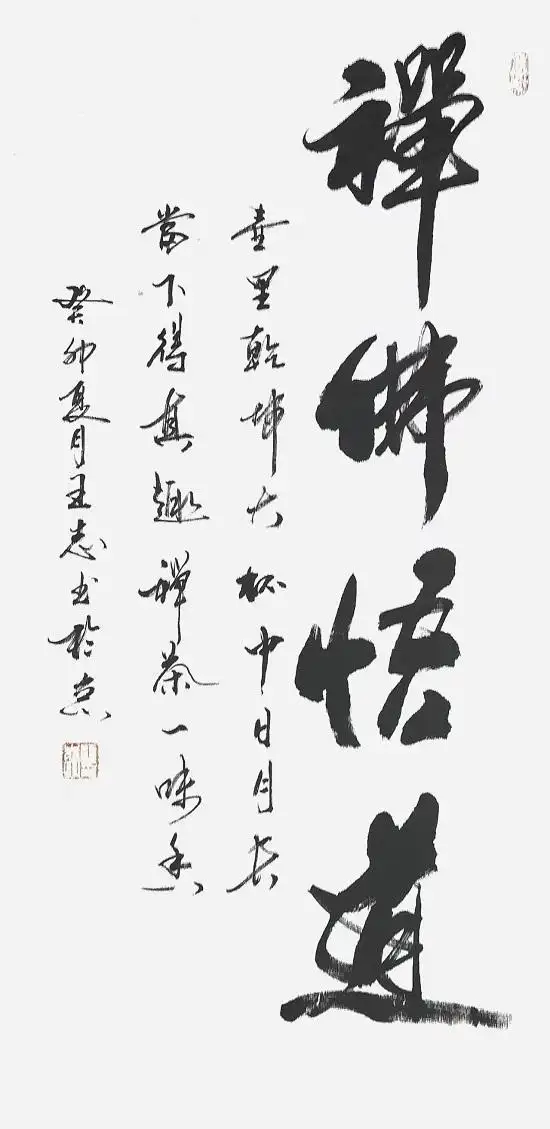 禪佛悟道
壶里乾坤大 杯中日月长
當下得真趣 禅茶一味香
癸卯夏月王志书於京